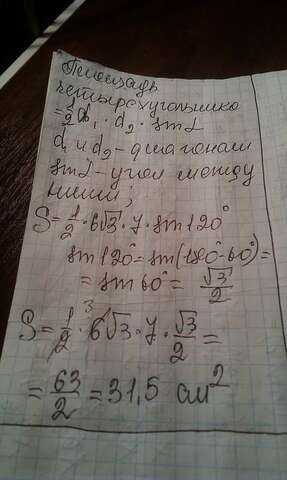 Площадь
четырехугольника
=1/2 d₁ · d₂ · sin L
d₁ и d₂ - диагонали
sin L - угол между
ними;
S = 1/2 · 6√3 · 7 · sin 120°
sin 120° = sin(180° - 60°) =
= sin 60° = √3/2
S = 1/2 · 6 3 √3 · 7 · √3/2 =
= 63/2 = 31,5 см²